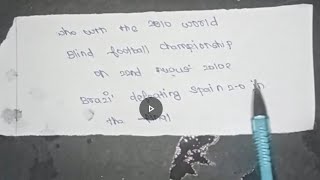 who win the 2010 world
Blind football championship
on 22nd August 2010
Brazil defeating Spain 2-0 in
the